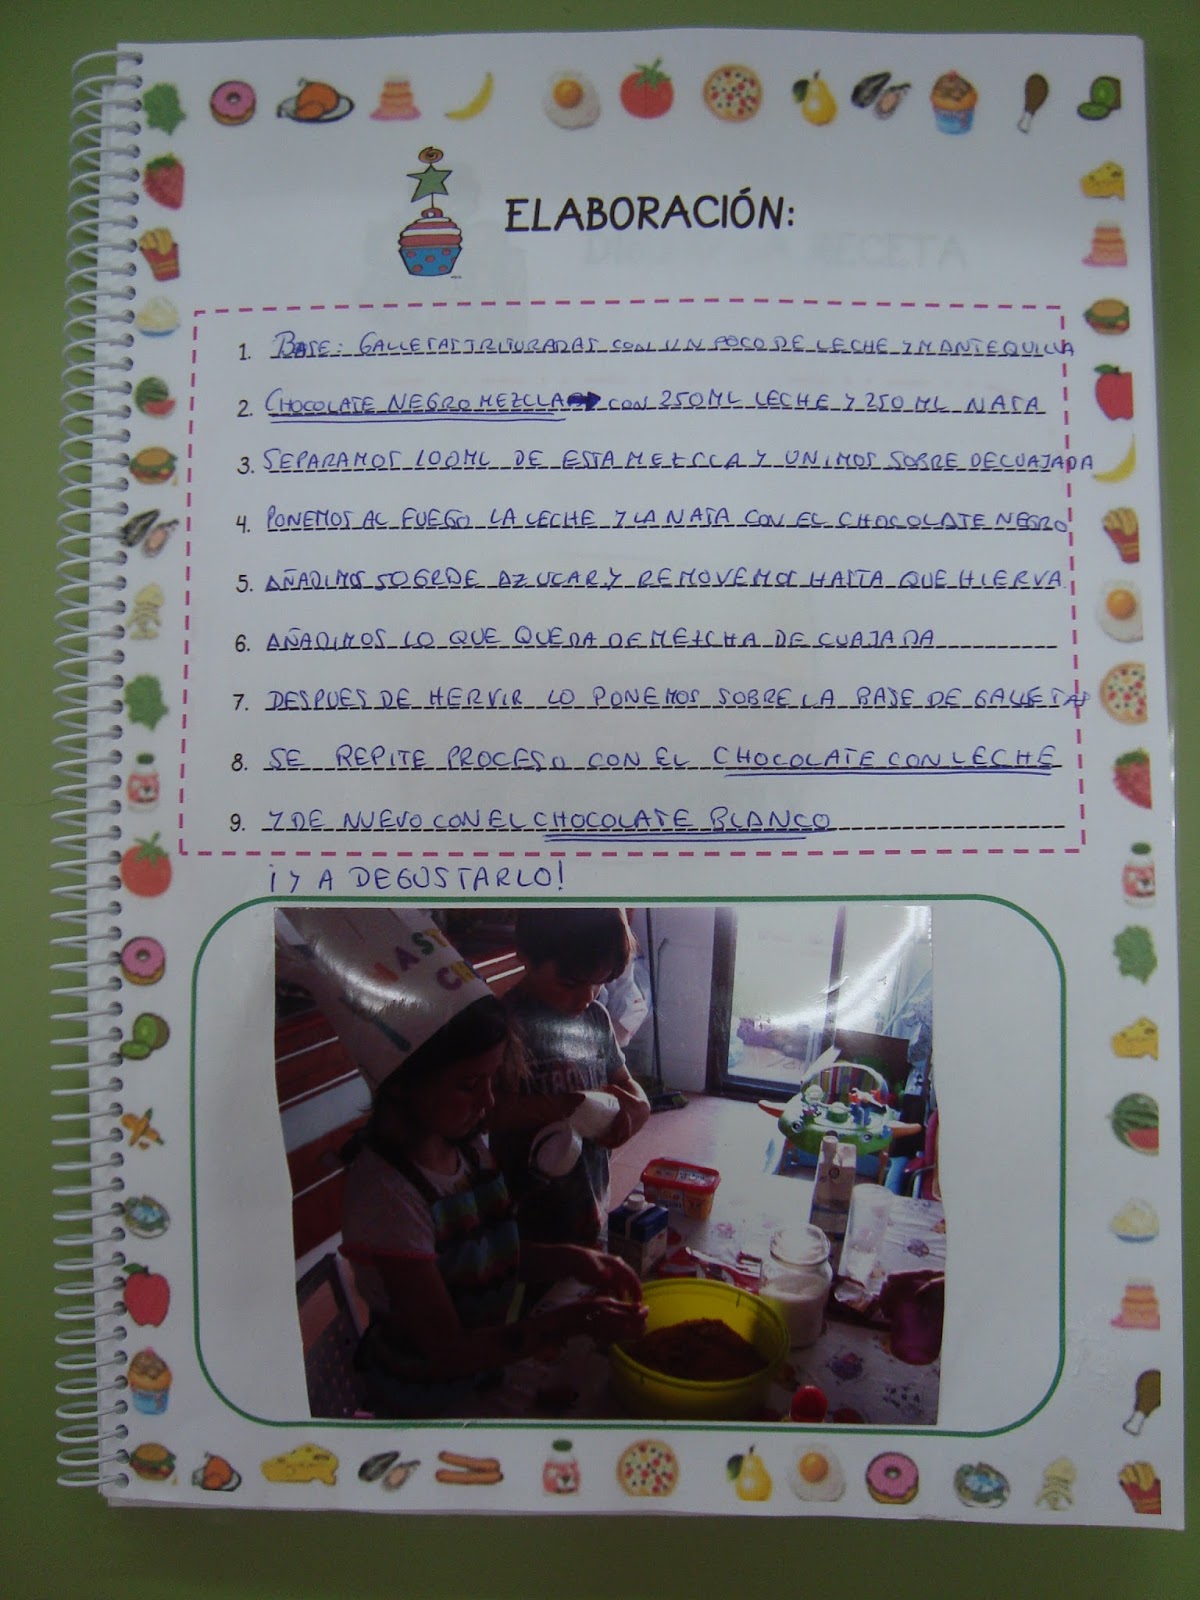 ELABORACIÓN:
1. BASE: GALLETAS TRITURADAS CON UN POCO DE LECHE Y MANTEQUILLA
2. CHOCOLATE NEGRO MEZCLA CON 250 ML LECHE Y 250 ML NATA
3. SEPARAMOS 100ML DE ESTA MEZCLA Y UNIMOS SOBRE DE CUAJADA
4. PONEMOS AL FUEGO LA LECHE Y LA NATA CON EL CHOCOLATE NEGRO
5. AÑADIMOS 50GR DE AZUCAR Y REMOVEMOS HASTA QUE HIERVA.
6. AÑADIMOS LO QUE QUEDA DE MEZCHA DE CUAJADA
7. DESPUES DE HERVIR LO PONEMOS SOBRE LA BASE DE GALLETAS
8. SE REPITE PROCESO CON EL CHOCOLATE CON LECHE
9. Y DE NUEVO CON EL CHOCOLATE BLANCO
¡Y A DEGUSTARLO!
MAST
CH